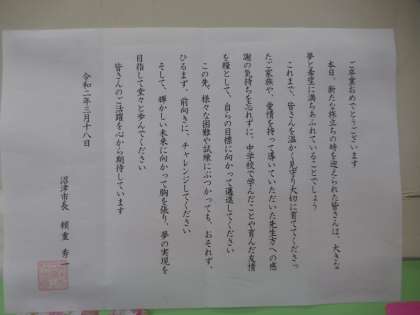 ご卒業おめでとうございます
本日、新たな旅立ちの時を迎えられた皆さんは、大きな
夢と希望に満ちあふれていることでしょう
これまで、皆さんを温かく見守り大切に育ててくださっ
たご家族や、愛情を持って導いていただいた先生方への感
謝の気持ちを忘れずに、中学校で学んだことや育んだ友情
を糧として、自らの目標に向かって邁進してください
この先、様々な困難や試練にぶつかっても、おそれず、
ひるまず、前向きに、チャレンジしてください
そして、輝かしい未来に向かって胸を張り、夢の実現を
目指して堂々と歩んでください
皆さんのご活躍を心から期待しています
令和二年三月十八日
沼津市長 頼重 秀一